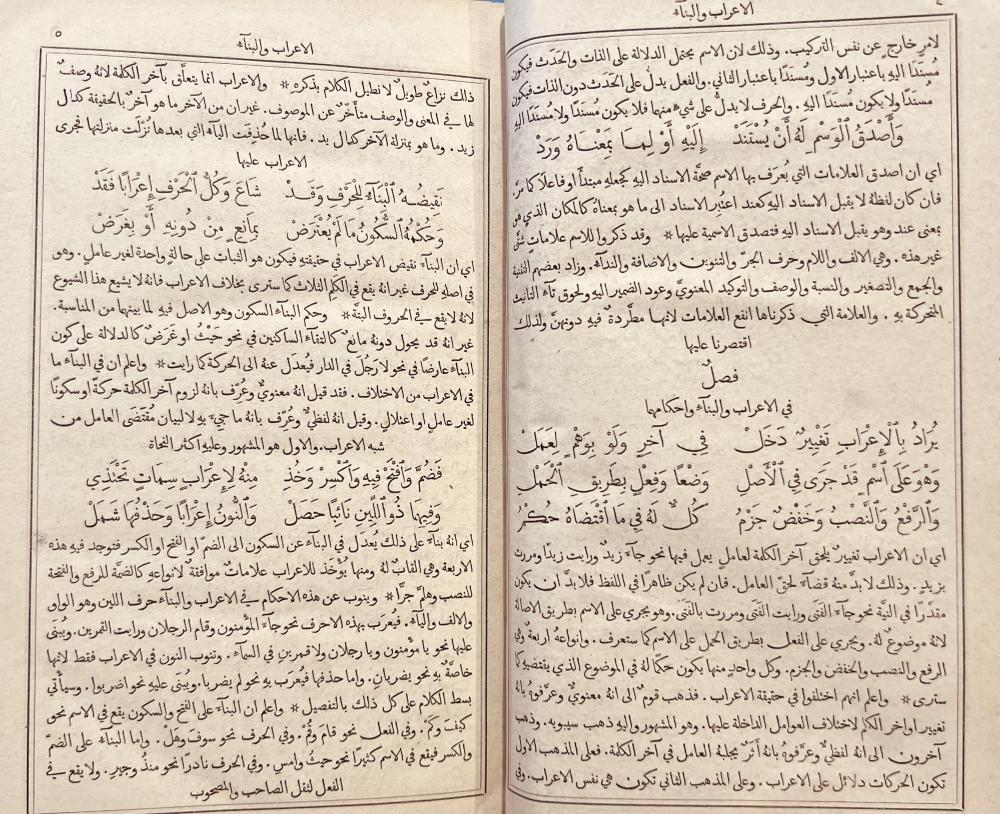 ٤
الاعراب والبناء
لامرٍ خارج عن نفس التركيب. وذلك لان الاسم يحتمل الدلالة على الذات والحَدَث فيكون
مُسنَدًا اليهِ باعتبار الاول ومُسنَدًا باعتبار الثاني. والفعل يدلُّ على الحَدَث دون الذات فيكون
مُسنَدًا ولا يكون مُسنَدًا اليهِ. والحرف لا يدلُّ على شيءٍ منهما فلا يكون مُسنَدًا ولا مُسنَدًا اليهِ
وَأَصْدَقُ الْوَسْمِ لَهُ أَنْ يُسْتَنَدْ إِلَيْهِ أَوْ لِمَا بِمَعْنَاهُ وَرَدْ
اي ان اصدق العلامات التي يُعرَف بها الاسم صحَّة الاسناد اليهِ كجعلهِ مبتدأً او فاعلًا كما مرَّ.
فان كان لفظهُ لا يقبل الاسناد اليهِ كعند اعتُبِر الاسناد الى ما هو بمعناهُ كالمكان الذي هو
بمعنى عند وهو يقبل الاسناد اليهِ فتصدق الاسمية عليها * وقد ذكروا للاسم علاماتٍ شتَّى
غير هذه. وهي الالف واللام وحرف الجرّ والتنوين والاضافة والندآء. وزاد بعضهم التثنية
والجمع والتصغير والنسبة والوصف والتوكيد المعنويَّ وعود الضمير اليهِ ولحوق تآء التانيث
المتحركة بهِ. والعلامة التي ذكرناها انفع العلامات لانها مطَّردةٌ فيهِ دونهنَّ ولذلك
اقتصرنا عليها
فصلٌ
في الاعراب والبنآء واحكامهما
يُرَادُ بِالْإِعْرَابِ تَغْيِيرٌ دَخَلْ فِي آخِرٍ وَلَوْ بِوَهْمٍ لِعَمَلْ
وَهْوَ عَلَى اسْمٍ قَدْ جَرَى فِي الْأَصْلِ وَضْعًا وَفِعْلٍ بِطَرِيقِ الْحَمْلِ
وَالرَّفْعُ وَالنَّصْبُ وَخَفْضٌ جَزْمُ كُلٌّ لَهُ فِي مَا اقْتَضَاهُ حُكْمُ
اي ان الاعراب تغييرٌ يلحق آخر الكلمة لعاملٍ يعمل فيها نحو جآءَ زيدٌ ورايت زيدًا ومررت
بزيدٍ. وذلك لا بدَّ منهُ قضآءً لحقّ العامل. فان لم يكن ظاهرًا في اللفظ فلا بدَّ ان يكون
مقدَّرًا في النيَّة نحو جآءَ الفتى ورايت الفتى ومررت بالفتى. وهو يجري على الاسم بطريق الاصالة
لانهُ موضوعٌ لهُ. ويجري على الفعل بطريق الحمل على الاسم كما ستعرف. وانواعهُ اربعةٌ وهي
الرفع والنصب والخفض والجزم. وكل واحدٍ منها يكون حكمًا لهُ في الموضوع الذي يقتضيهِ كما
سترى * واعلم انهم اختلفوا في حقيقة الاعراب. فذهب قومٌ الى انهُ معنويٌّ وعرَّفوهُ بانهُ
تغيير اواخر الكلم لاختلاف العوامل الداخلة عليها. وهو المشهور واليهِ ذهب سيبويه. وذهب
آخرون الى انهُ لفظيٌّ وعرَّفوهُ بانهُ أَثَرٌ يجلبهُ العامل في آخر الكلمة. فعلى المذهب الاول
تكون الحركات دلائل على الاعراب. وعلى المذهب الثاني تكون هي نفس الاعراب. وفي
٥
الاعراب والبنآء
ذلك نزاعٌ طويلٌ لا نطيل الكلام بذكرهِ * والاعراب انما يتعلَّق بآخر الكلمة لانهُ وصفٌ
لها في المعنى والوصف متأخّرٌ عن الموصوف. غير ان من الآخر ما هو آخرٌ بالحقيقة كدال
زيد. وما هو بمنزلة الآخر كدال يد. فانها لما حُذِفت اليآء التي بعدها نُزِّلَت منزلتها فجرى
الاعراب عليها
نَقِيضُهُ الْبِنَآءُ لِلْحَرْفِ وَقَدْ شَاعَ وَكُلُّ الْحَرْفِ إِعْرَابًا فَقَدْ
وَحُكْمُهُ السُّكُونُ مَا لَمْ يُعْتَرَضْ بِمَانِعٍ مِنْ دُونِهِ أَوْ بِغَرَضْ
اي ان البنآء نقيض الاعراب في حقيقتهِ فيكون هو الثبات على حالةٍ واحدة لغير عاملٍ. وهو
في اصلهِ للحرف غير انهُ يقع في الكَلِم الثلاث كما سترى بخلاف الاعراب فانهُ لا يشيع هذا الشيوع
لانهُ لا يقع في الحروف البتَّة * وحكم البنآء السكون وهو الاصل فيهِ لما بينهما من المناسبة.
غير انهُ قد يحول دونهُ مانعٌ كالتقآء الساكنين في نحو حَيْثُ او غَرَضٌ كالدلالة على كون
البنآء عارضًا في نحو لا رَجُلَ في الدار فيُعدَل عنهُ الى الحركة كما رايت * واعلم ان في البنآء ما
في الاعراب من الاختلاف. فقد قيل انهُ معنويٌّ وعُرِّف بانهُ لزوم آخر الكلمة حركةً او سكونًا
لغير عاملٍ او اعتلالٍ. وقيل انهُ لفظيٌّ وعُرِّف بانهُ ما جيءَ بهِ لا لبيان مُقتضَى العامل من
شبه الاعراب. والاول هو المشهور وعليهِ اكثر النحاة
فَضُمَّ وَافْتَحْ فِيهِ وَاكْسِرْ وَخُذِ مِنْهُ لِإِعْرَابٍ سِمَاتٍ تَحْتَذِي
وَفِيهَا ذُو اللِّينِ نَائِبًا حَصَلْ وَالنُّونُ إِعْرَابًا وَحَذْفُهَا شَمَلْ
اي انهُ بنآءً على ذلك يُعدَل في البنآء عن السكون الى الضمّ او الفتح او الكسر فتوجد فيهِ هذه
الاربعة وهي القابٌ لهُ ومنها يُؤخَذ للاعراب علاماتٌ موافقةٌ لانواعهِ كالضمَّة للرفع والفتحة
للنصب وهلمَّ جرًّا * وينوب عن هذه الاحكام في الاعراب والبنآء حرف اللين وهو الواو
والالف واليآء. فيُعرَب بهذه الاحرف نحو جآءَ المُؤْمنون وقام الرجلان ورايت القمرين. ويُبنَى
عليها نحو يا مُؤْمنون ويا رجلان ولا قمرين في السمآء. وتنوب النون في الاعراب فقط لانها
خاصَّةٌ بهِ نحو يضربان. واما حذفها فيُعرَب بهِ نحو لم يضربا ويُبنَى عليهِ نحو اضربوا. وسيأتي
بسط الكلام على كل ذلك بالتفصيل * واعلم ان البنآء على الفتح والسكون يقع في الاسم نحو
كيفَ وكَمْ. وفي الفعل نحو قامَ وقُمْ. وفي الحرف نحو سوفَ وهَلْ. واما البنآء على الضمّ
والكسر فيقع في الاسم كثيرًا نحو حيثُ وامسِ. وفي الحرف نادرًا نحو منذُ وجيرِ. ولا يقع في
الفعل لثقل الصاحب والمصحوب